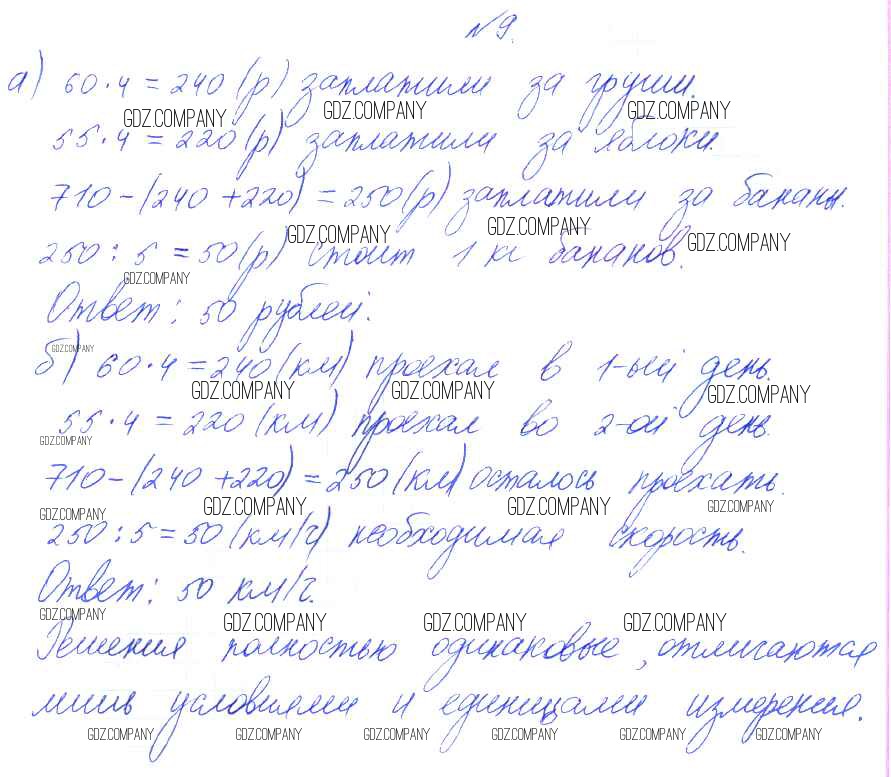 №9.
а) 60·4=240 (р) заплатили за груши.
GDZ.COMPANY GDZ.COMPANY GDZ.COMPANY
55·4=220 (р) заплатили за яблоки.
710-(240+220)=250 (р) заплатили за бананы.
GDZ.COMPANY GDZ.COMPANY GDZ.COMPANY
250:5=50 (р) стоит 1 кг бананов.
GDZ.COMPANY
Ответ: 50 рублей.
GDZ.COMPANY
б) 60·4=240 (км) проехал в 1-ый день.
GDZ.COMPANY GDZ.COMPANY GDZ.COMPANY
55·4=220 (км) проехал во 2-ой день.
GDZ.COMPANY
710-(240+220)=250 (км) осталось проехать.
GDZ.COMPANY GDZ.COMPANY GDZ.COMPANY GDZ.COMPANY
250:5=50 (км/ч) необходимая скорость.
Ответ: 50 км/ч.
GDZ.COMPANY GDZ.COMPANY GDZ.COMPANY GDZ.COMPANY
Решения полностью одинаковые, отличаются
лишь условиями и единицами измерения.
GDZ.COMPANY GDZ.COMPANY GDZ.COMPANY GDZ.COMPANY GDZ.COMPANY GDZ.COMPANY